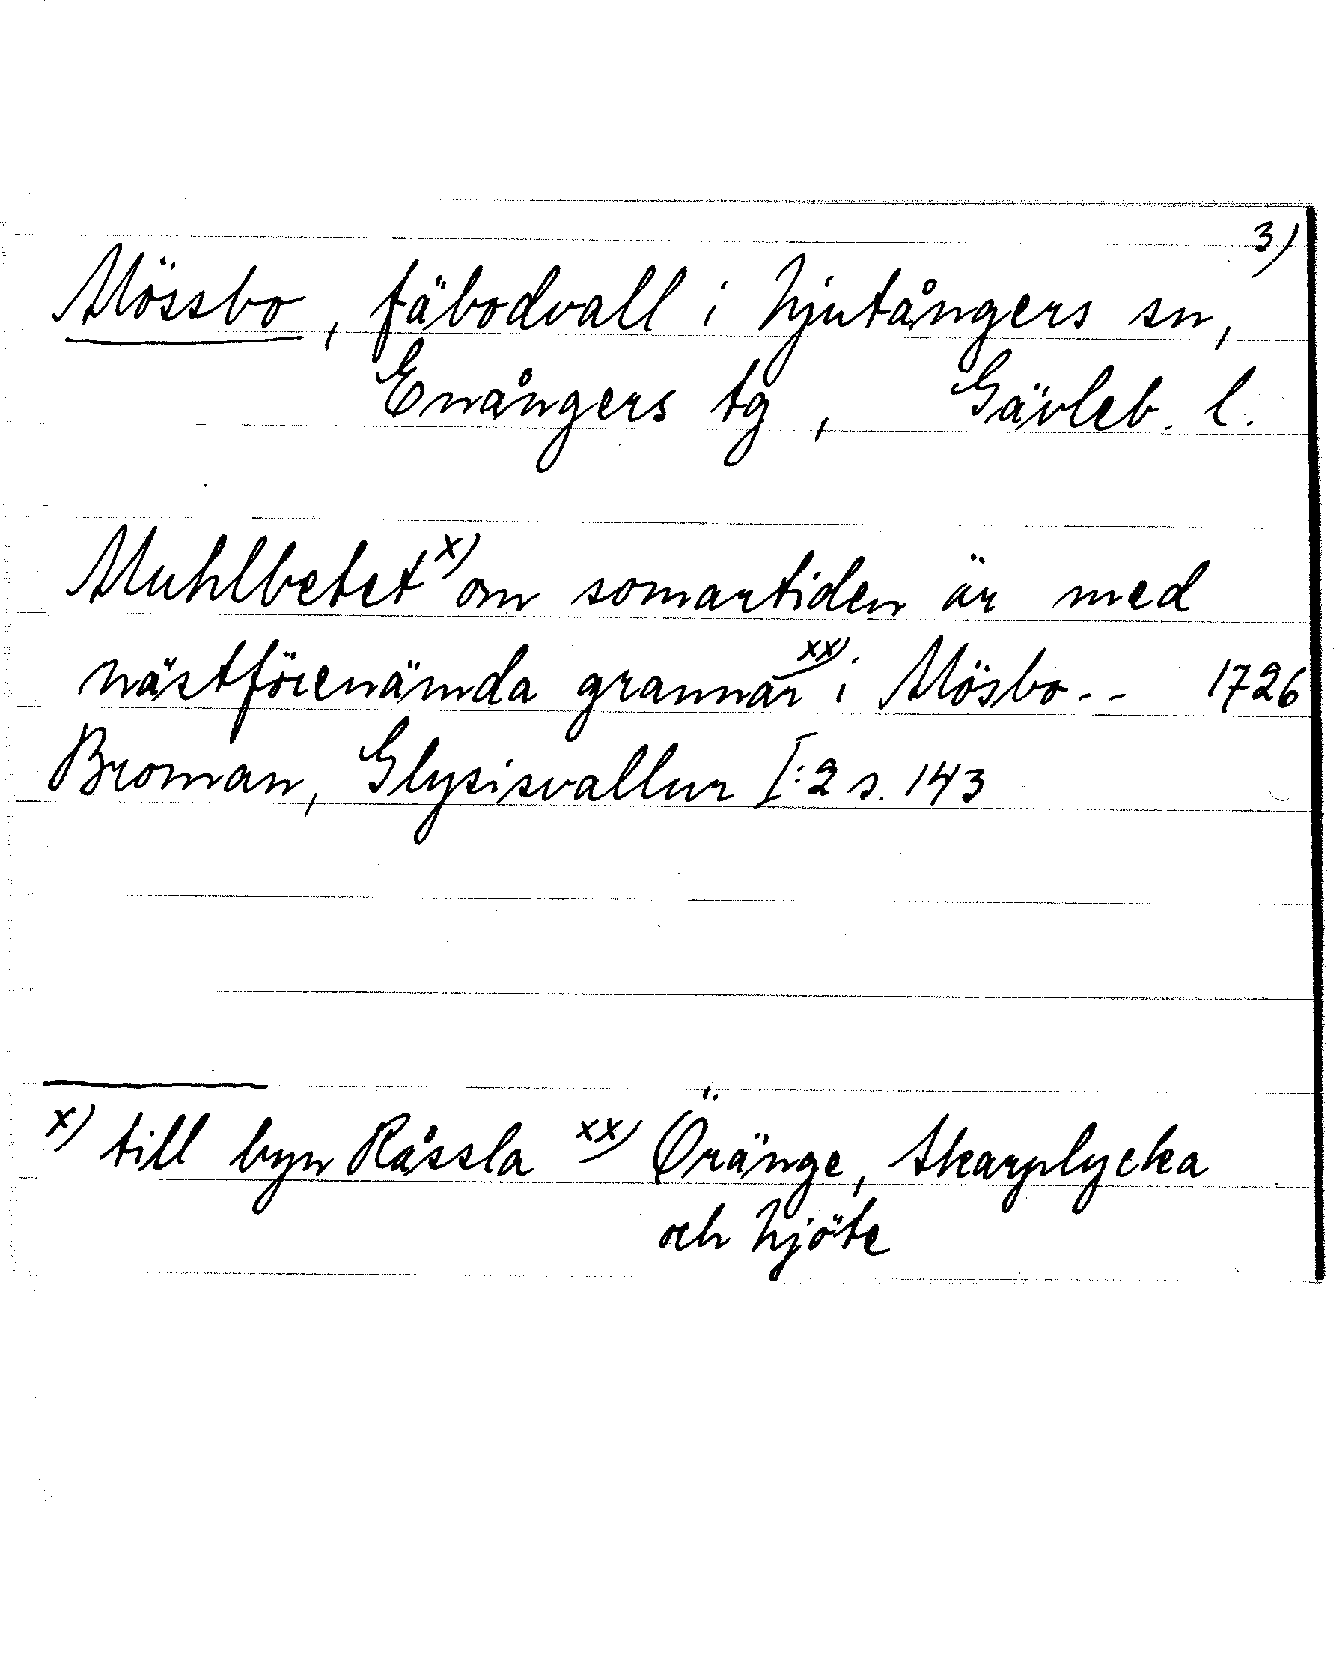 3)
Mössbo, fäbodvall i Njutångers sn,
Enångers tg, Gävleb. l.
Muhlbetet x) om somartiden är med
nästförenämda grannar xx) i Mösbo -- 1726
Broman, Glysisvallur I:2 s. 143
x) till byn Råssla xx) Öränge, Skarplycka
och Njöte